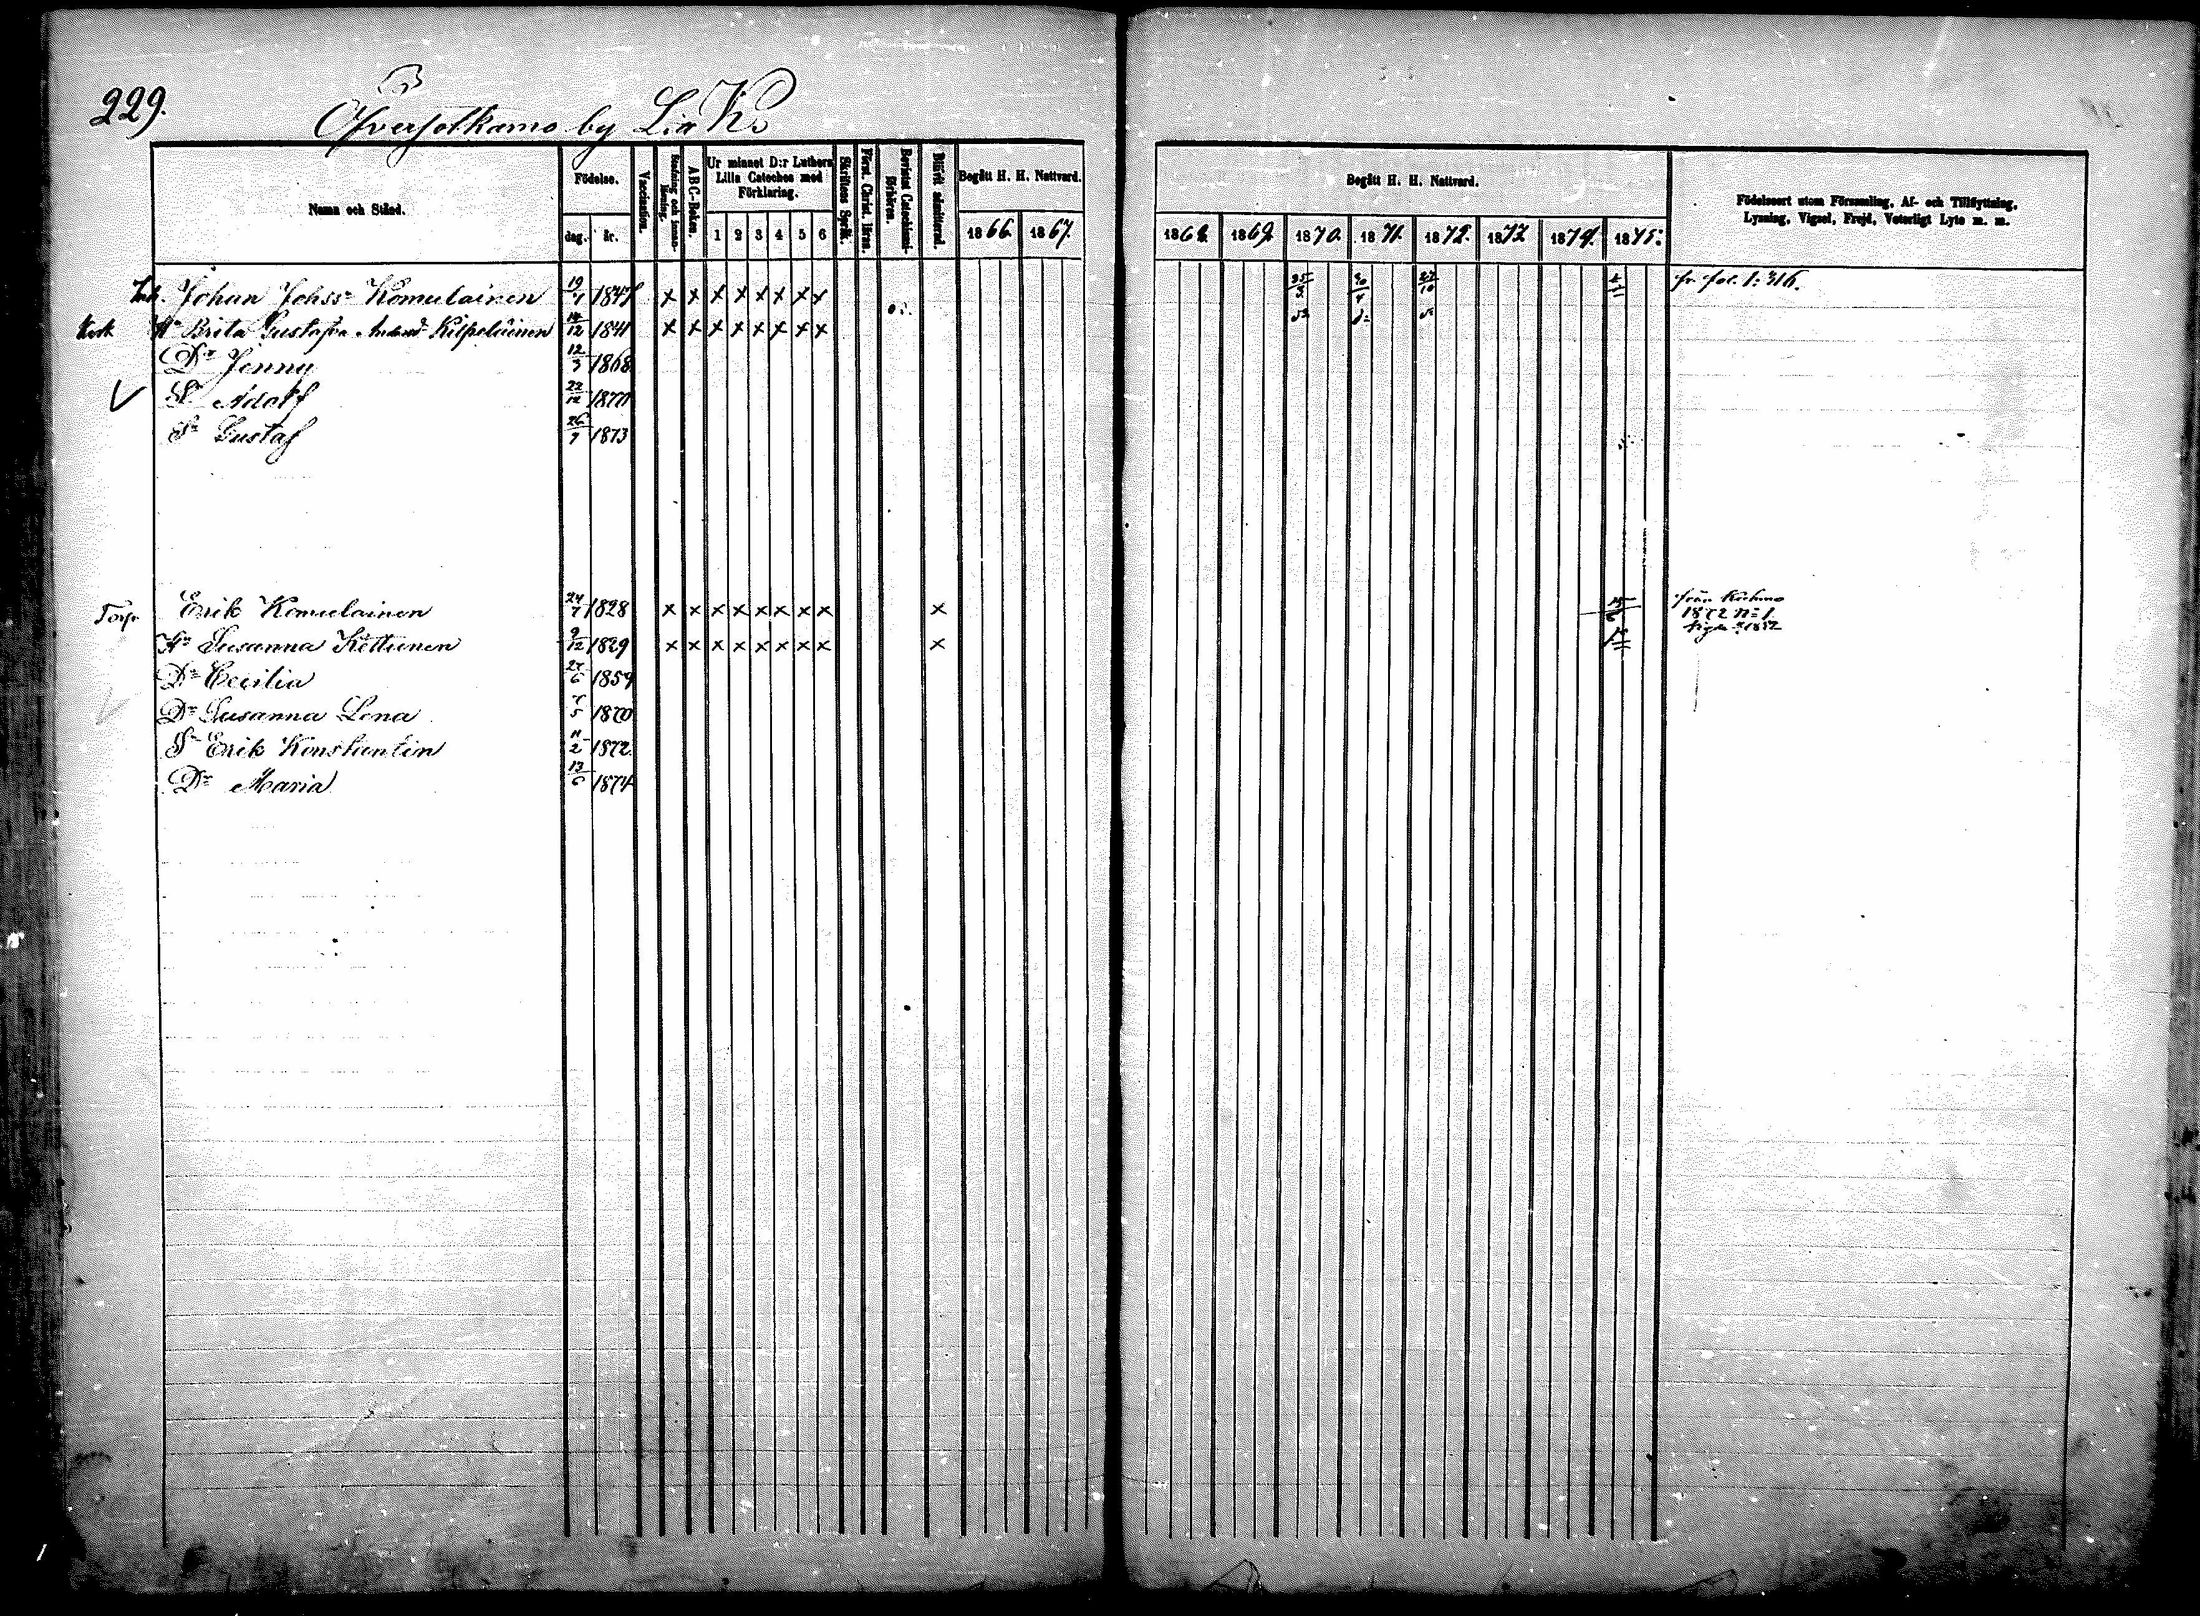 229.
Öfversotkamo by Lit K.
Namn och Stånd.
Födelse.
dag. år.
Vaccination.
A B C-Boken.
Ur minnet D:r Luthers Lilla Cateches med Förklaring.
1 2 3 4 5 6
Skriftens Språk.
Blifvit admitterad.
Begått H. H. Nattvard.
1866. 1867.
Begått H. H. Nattvard.
1868. 1869. 1870. 1871. 1872. 1873 1874. 1875.
Födelseort utom Församling, Af- och Tillflyttning,
Lysning, Vigsel, Frejd, Veterligt Lyte m. m.
Inh. Johan Johss. Komulainen 19/1 1847 x x x x x x x x 25/3 30/4 27/10 4/11 fr. fol. 1:316.
H:u Brita Gustafsa Kilpeläinen 14/12 1841 x x x x x x x x
D:r Jenny 12/3 1868
S:n Adolf 22/12 1870
S:n Gustaf 26/7 1873
Torp. Erik Komulainen 24/7 1828 x x x x x x x x x från Kuhmo
1872 n:o 1
H:u Susanna Kettunen 9/12 1829 x x x x x x x x x
D:r Cecilia 27/6 1859
D:r Susanna Lena 7/5 1870
S:n Erik Konstantin 11/2 1872
D:r Maria 13/6 1874